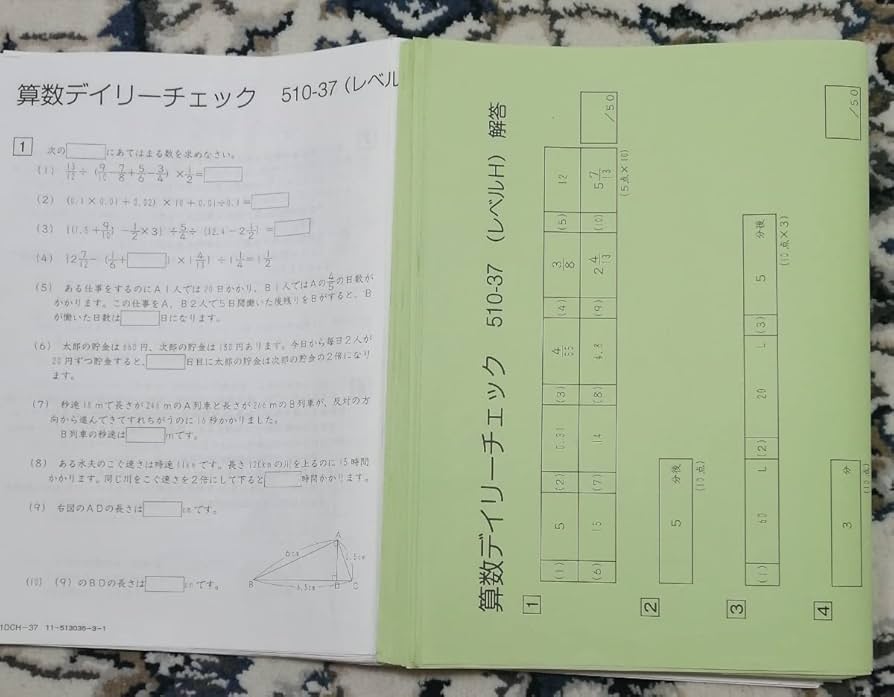 算数デイリーチェック 510-37 (レベル
1 次の□にあてはまる数を求めなさい。
(1) 13/12÷(9/10-7/8+5/6-3/4)×1/2=□
(2) (0.1×0.01+0.02)×10+0.01÷0.1=□
(3) {(1.5+9/10)-1/2×3}÷5/4÷(12.4-2 1/2)=□
(4) {2 7/12-(1/6+□)×1 4/13}÷1 1/4=1 1/2
(5) ある仕事をするのにA1人では20日かかり、B1人ではAの4/5の日数が
かかります。この仕事をA、B2人で5日間働いた後残りをBがすると、B
が働いた日数は□日になります。
(6) 太郎の貯金は660円、次郎の貯金は180円あります。今日から毎日2人が
20円ずつ貯金すると、□日目に太郎の貯金は次郎の貯金の2倍になり
ます。
(7) 秒速18mで長さが246mのA列車と長さが266mのB列車が、反対の方
向から進んできてすれちがうのに16秒かかりました。
B列車の秒速は□mです。
(8) ある水夫のこぐ速さは時速11kmです。長さ120kmの川を上るのに15時間
かかります。同じ川をこぐ速さを2倍にして下ると□時間かかります。
(9) 右図のADの長さは□cmです。
A
6cm
2.5cm
B
D
C
6.5cm
(10) (9)のBDの長さは□cmです。
10CH-37 11-513035-3-1
算数デイリーチェック 510-37 (レベルH) 解答
/50
1
(1) 5 (2) 0.31 (3) 4/55 (4) 3/8 (5) 12
(6) 15 (7) 14 (8) 4.8 (9) 2 4/13 (10) 5 7/13
(5点×10)
2
5 分後
(10点)
3
(1) 60 L (2) 20 L (3) 5 分後
(10点×3)
4
3 分
(10点)
/50